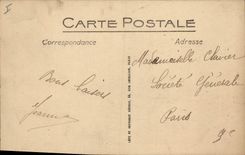 CARTE POSTALE
Correspondance
Adresse
Mademoiselle Clavier
Société Générale
Paris
9e
Bons baisers
Jeanne